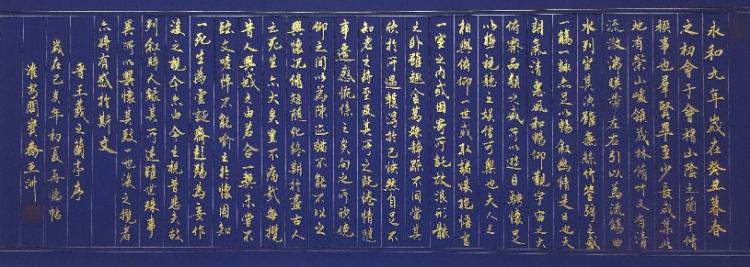 永和九年歲在癸丑暮春
之初會于會稽山陰之蘭亭脩
禊事也羣賢畢至少長咸集此
地有崇山峻領茂林脩竹又有清
流激湍暎帶左右引以為流觴曲
水列坐其次雖無絲竹管弦之盛
一觴一詠亦足以暢叙幽情是日也天
朗氣清惠風和暢仰觀宇宙之大
俯察品類之盛所以遊目騁懷足
以極視聽之娛信可樂也夫人之
相與俯仰一世或取諸懷抱悟言
一室之內或因寄所託放浪形骸
之外雖趣舍萬殊靜躁不同當其
欣於所遇蹔得於己快然自足不
知老之將至及其所之既倦情隨
事遷感慨係之矣向之所欣俛
仰之間以為陳迹猶不能不以之
興懷況脩短隨化終期於盡古人
云死生亦大矣豈不痛哉每攬
昔人興感之由若合一契未嘗不
臨文嗟悼不能喻之於懷固知
一死生為虛誕齊彭殤為妄作
後之視今亦由今之視昔悲夫故
列叙時人錄其所述雖世殊事
異所以興懷其致一也後之攬者
亦將有感於斯文
晉王羲之蘭亭序
歲在己亥年初夏再臨帖
淮安